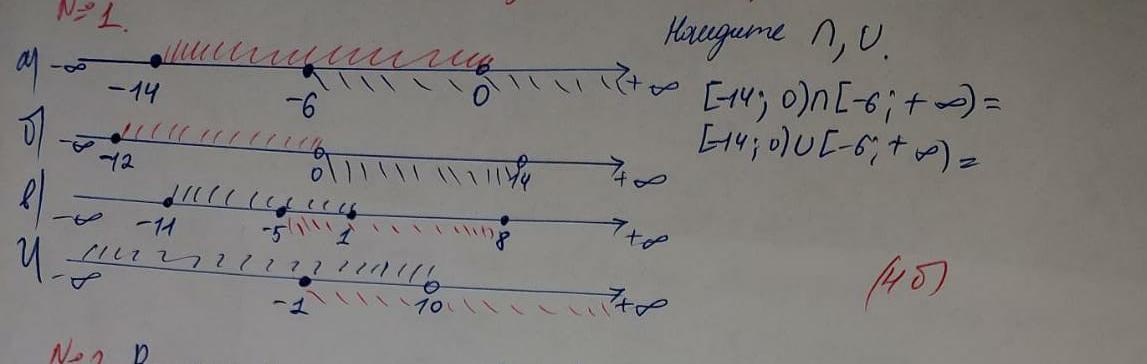 №1.
Найдите ∩, ∪.
а) -∞ -14 -6 0 +∞
[-14; 0)∩[-6; +∞)=
[-14; 0)∪[-6; +∞)=
б) -∞ -12 0 14 +∞
в) -∞ -11 -5 1 8 +∞
г) -∞ -1 10 +∞
(4б)